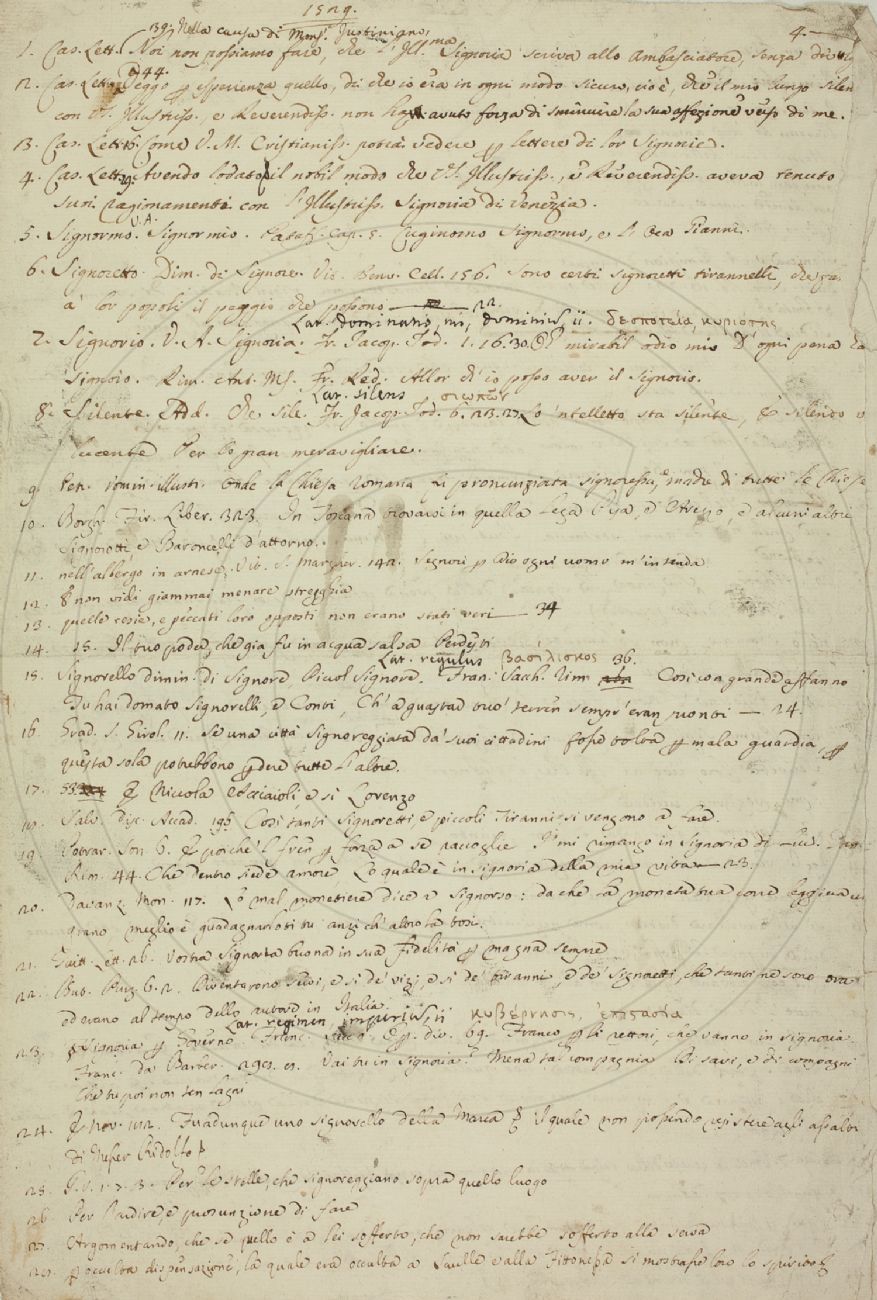 1529.
139. Nella causa di Monsr. Justinigno,
4.
1. Cas. Lett. Noi non possiamo fare, che l'Ill.ma Signoria scriva allo Ambasciatore, senza
2. Cas. Lett. 44. Veggo p esperienza quello, di che io era in ogni modo sicuro, cioè, che il mio lungo silen
con V.S. Illustriss. e Reverendiss. non avuto forza di sminuire la sua affezione verso di me.
13. Cas. Lett. 15. Come V. M. Cristianiss. potrà vedere p lettere di lor Signorie.
4. Cas. Lett. 19. Avendo lodato il nobil modo che V.S. Illustriss., e Reverendiss. aveva tenuto
suoi ragionamenti con l'Illustriss. Signoria di Venezia.
5. Signormo. V.A. Signormio. Cap. 5. Cuginomo Signormo, e
6. Signoretto. Dim. di Signore. Vit. Benv. Cell. 156. Sono certi signoretti tirannelli, che fa
a' lor popoli il peggio che possono 22.
Lat. dominatio, nis, dominium, ii. δεσποτεία, κυριοτης
7. Signorio. V. A. Signoria. Fr. Jacop. Tod. 1. 16. 30. O mirabil odio mio D'ogni pena
Signorio. Rim. Ant. Ms. Fr. Red. Allor ch'io posso aver il Signorio.
Lat. silens σιωπῶν
8. Silente. Add. Che sile. Fr. Jacop. Tod. 6. 23. 27. Lo 'ntelletto sta silente, E silendo
lucente Per lo gran meravigliare.
9. Pet. uomin. illustr. Onde la Chiesa romana fu pronunziata signoressa, e madre di tutte le Chiese
10. Borgh. Fir. Liber. 323. In Toscana trovarsi in quella Lega Pisa, ed Arezzo, ed alcuni altri
Signorotti e Baroncelli d'attorno.
11. nell'albergo in arnese. Vit. S. Margher. 142. Segnori p Dio ogni uomo m'intenda
12. E non vidi giammai menare stregghia
13. quelle resie, e peccati loro opposti non erano stati veri 34
14. 15. Il tuo poder, che già fu in acqua salsa Perdesti
Lat. regulus βασιλίσκος 36.
15. Signorello dimin. di Signore, Piccol Signore. Fran. Sacch. Rim. Così con grande affanno
Tu hai domato Signorelli, e Conti, Ch' a guastar tuo' terren sempr' eran pronti 24.
16. Grad. S. Girol. 11. Se una città signoreggiata da' suoi cittadini fosse tolta p mala guardia, p
questa sola potrebbono perdere tutte l'altre.
17. 53. E Niccola Acciaioli, e si Lorenzo
18. Salv. Disc. Accad. 195. Così tanti Signoretti, e piccoli Tiranni si vengono a fare.
19. Petrar. Son. 6. E poiche 'l fren p forza a se raccoglie I' mi rimango in Signoria di
Rim. 44. Che dentro siede amore Lo quale è in signoria della mia vita 23.
20. Davanz. Mon. 117. Lo mal monetiere dice a Signorso: da che la moneta tua corre
grano meglio è guadagnarloti tu anzi ch' altro la tosi.
21. Guitt. Lett. 26. Vostra Signoria buona in sua fidelità p magna sempre
22. But. Purg. 6. 2. Diventarono servi, e si de' vizj, e si de' tiranni, e de' Signoretti, che tanti ne sono ora
ed erano al tempo dello autore in Italia.
Lat. regimen, imperium, ii κυβέρνησις, ἐπιστασία
23. Signoria p Governo. Franc. Sacch. Op. div. 69. Franco p li rettori, che vanno in signoria.
Franc. da Barber. Vai tu in Signoria? Mena tal compagnia Di savi, e di compagni
Che tu poi non ten lagni
24. E Nov. 112. Fu adunque uno signorello della Marca il quale non possendo resistere agli assalti
di Messer Ridolfo
25. Per le stelle, che signoreggiano sopra quello luogo
26. Per l'ardire, e prosunzione di fare
27. Argomentando, che se quello è a lei sofferto, che non sarebbe sofferto alla serva
28. p occulta dispensazione, la quale era occulta a Saulle e alla Fitonessa si mostrasse loro lo spirito